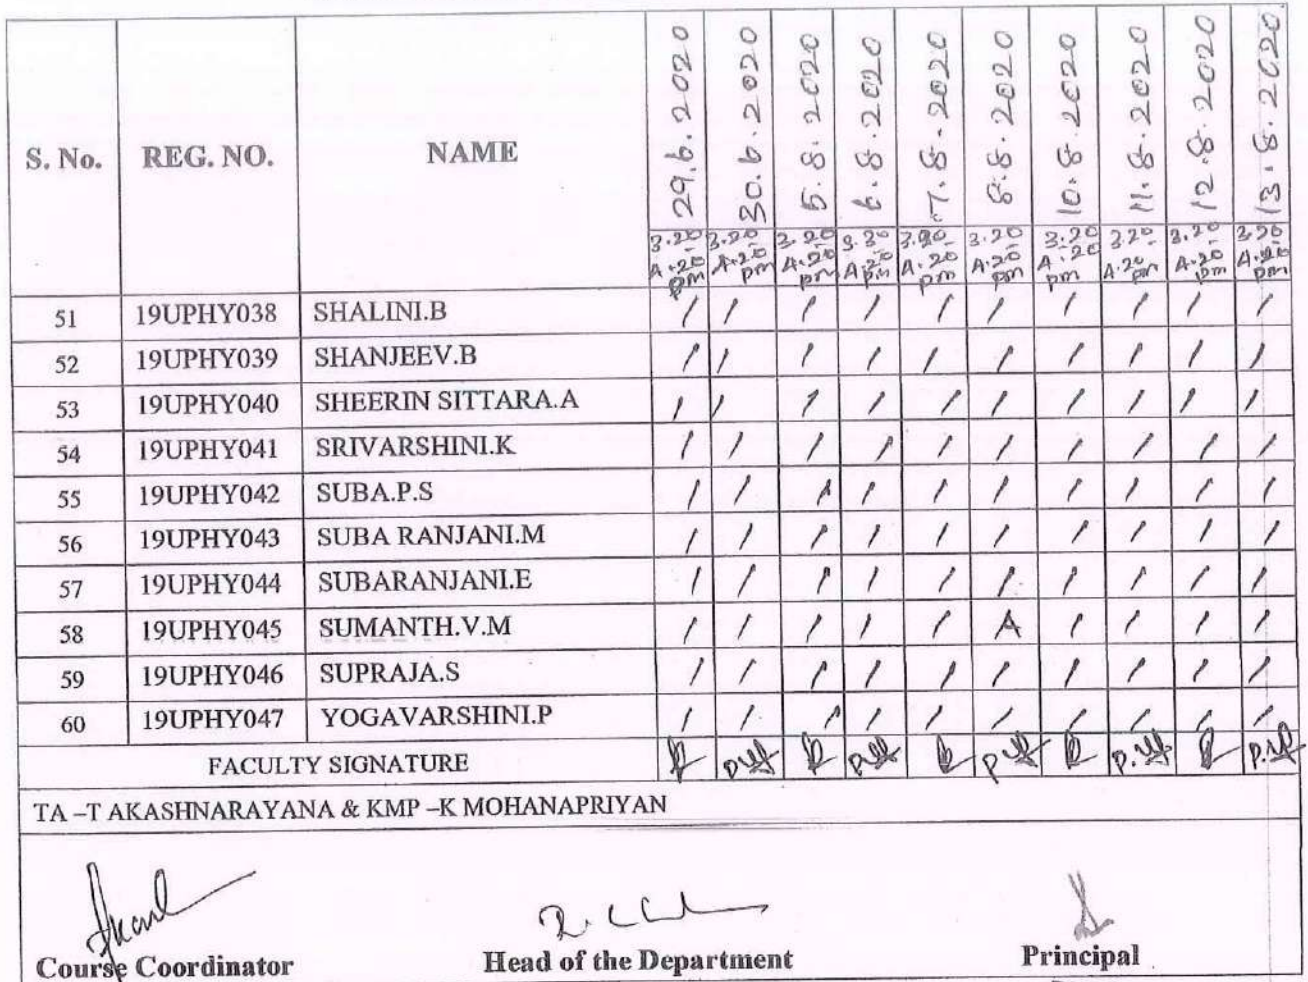 S. No. REG. NO. NAME 29.6.2020 30.6.2020 5.8.2020 6.8.2020 7.8.2020 8.8.2020 10.8.2020 11.8.2020 12.8.2020 13.8.2020
3.20- 3.20- 3.20- 3.20- 3.20- 3.20- 3.20- 3.20- 3.20- 3.20-
4.20 4.20 4.20 4.20 4.20 4.20 4.20 4.20 4.20 4.20
pm pm pm pm pm pm pm pm pm pm
51 19UPHY038 SHALINI.B / / / / / / / / / /
52 19UPHY039 SHANJEEV.B / / / / / / / / / /
53 19UPHY040 SHEERIN SITTARA.A / / / / / / / / / /
54 19UPHY041 SRIVARSHINI.K / / / / / / / / / /
55 19UPHY042 SUBA.P.S / / / / / / / / / /
56 19UPHY043 SUBA RANJANI.M / / / / / / / / / /
57 19UPHY044 SUBARANJANI.E / / / / / / / / / /
58 19UPHY045 SUMANTH.V.M / / / / / A / / / /
59 19UPHY046 SUPRAJA.S / / / / / / / / / /
60 19UPHY047 YOGAVARSHINI.P / / / / / / / / / /
FACULTY SIGNATURE
TA –T AKASHNARAYANA & KMP –K MOHANAPRIYAN
Course Coordinator Head of the Department Principal